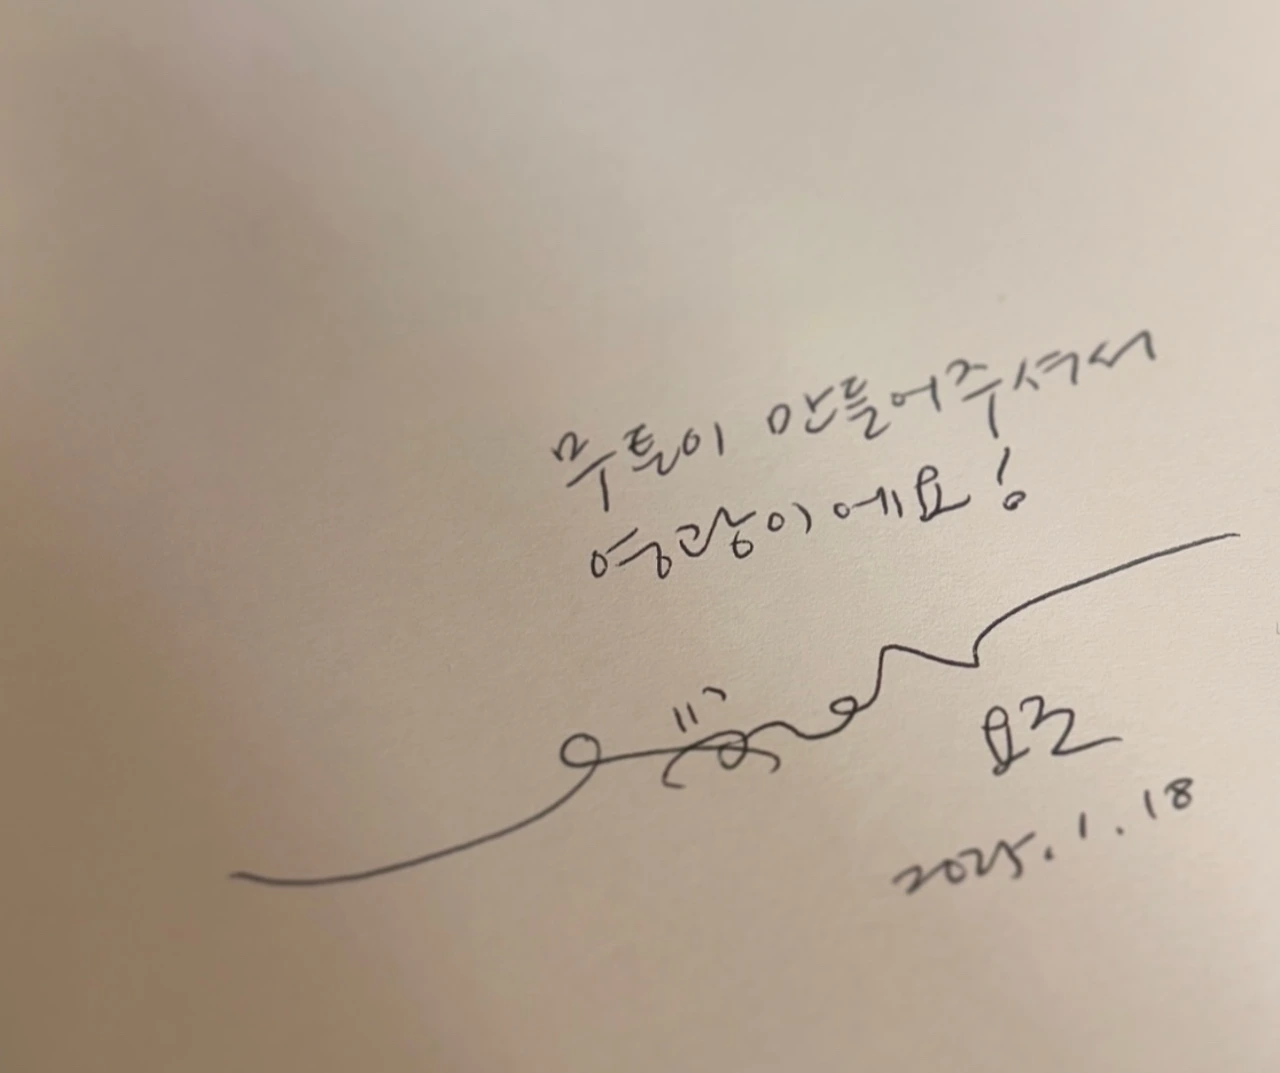 무튼이 만들어주셔서
영광이에요!
요조
2025.1.18